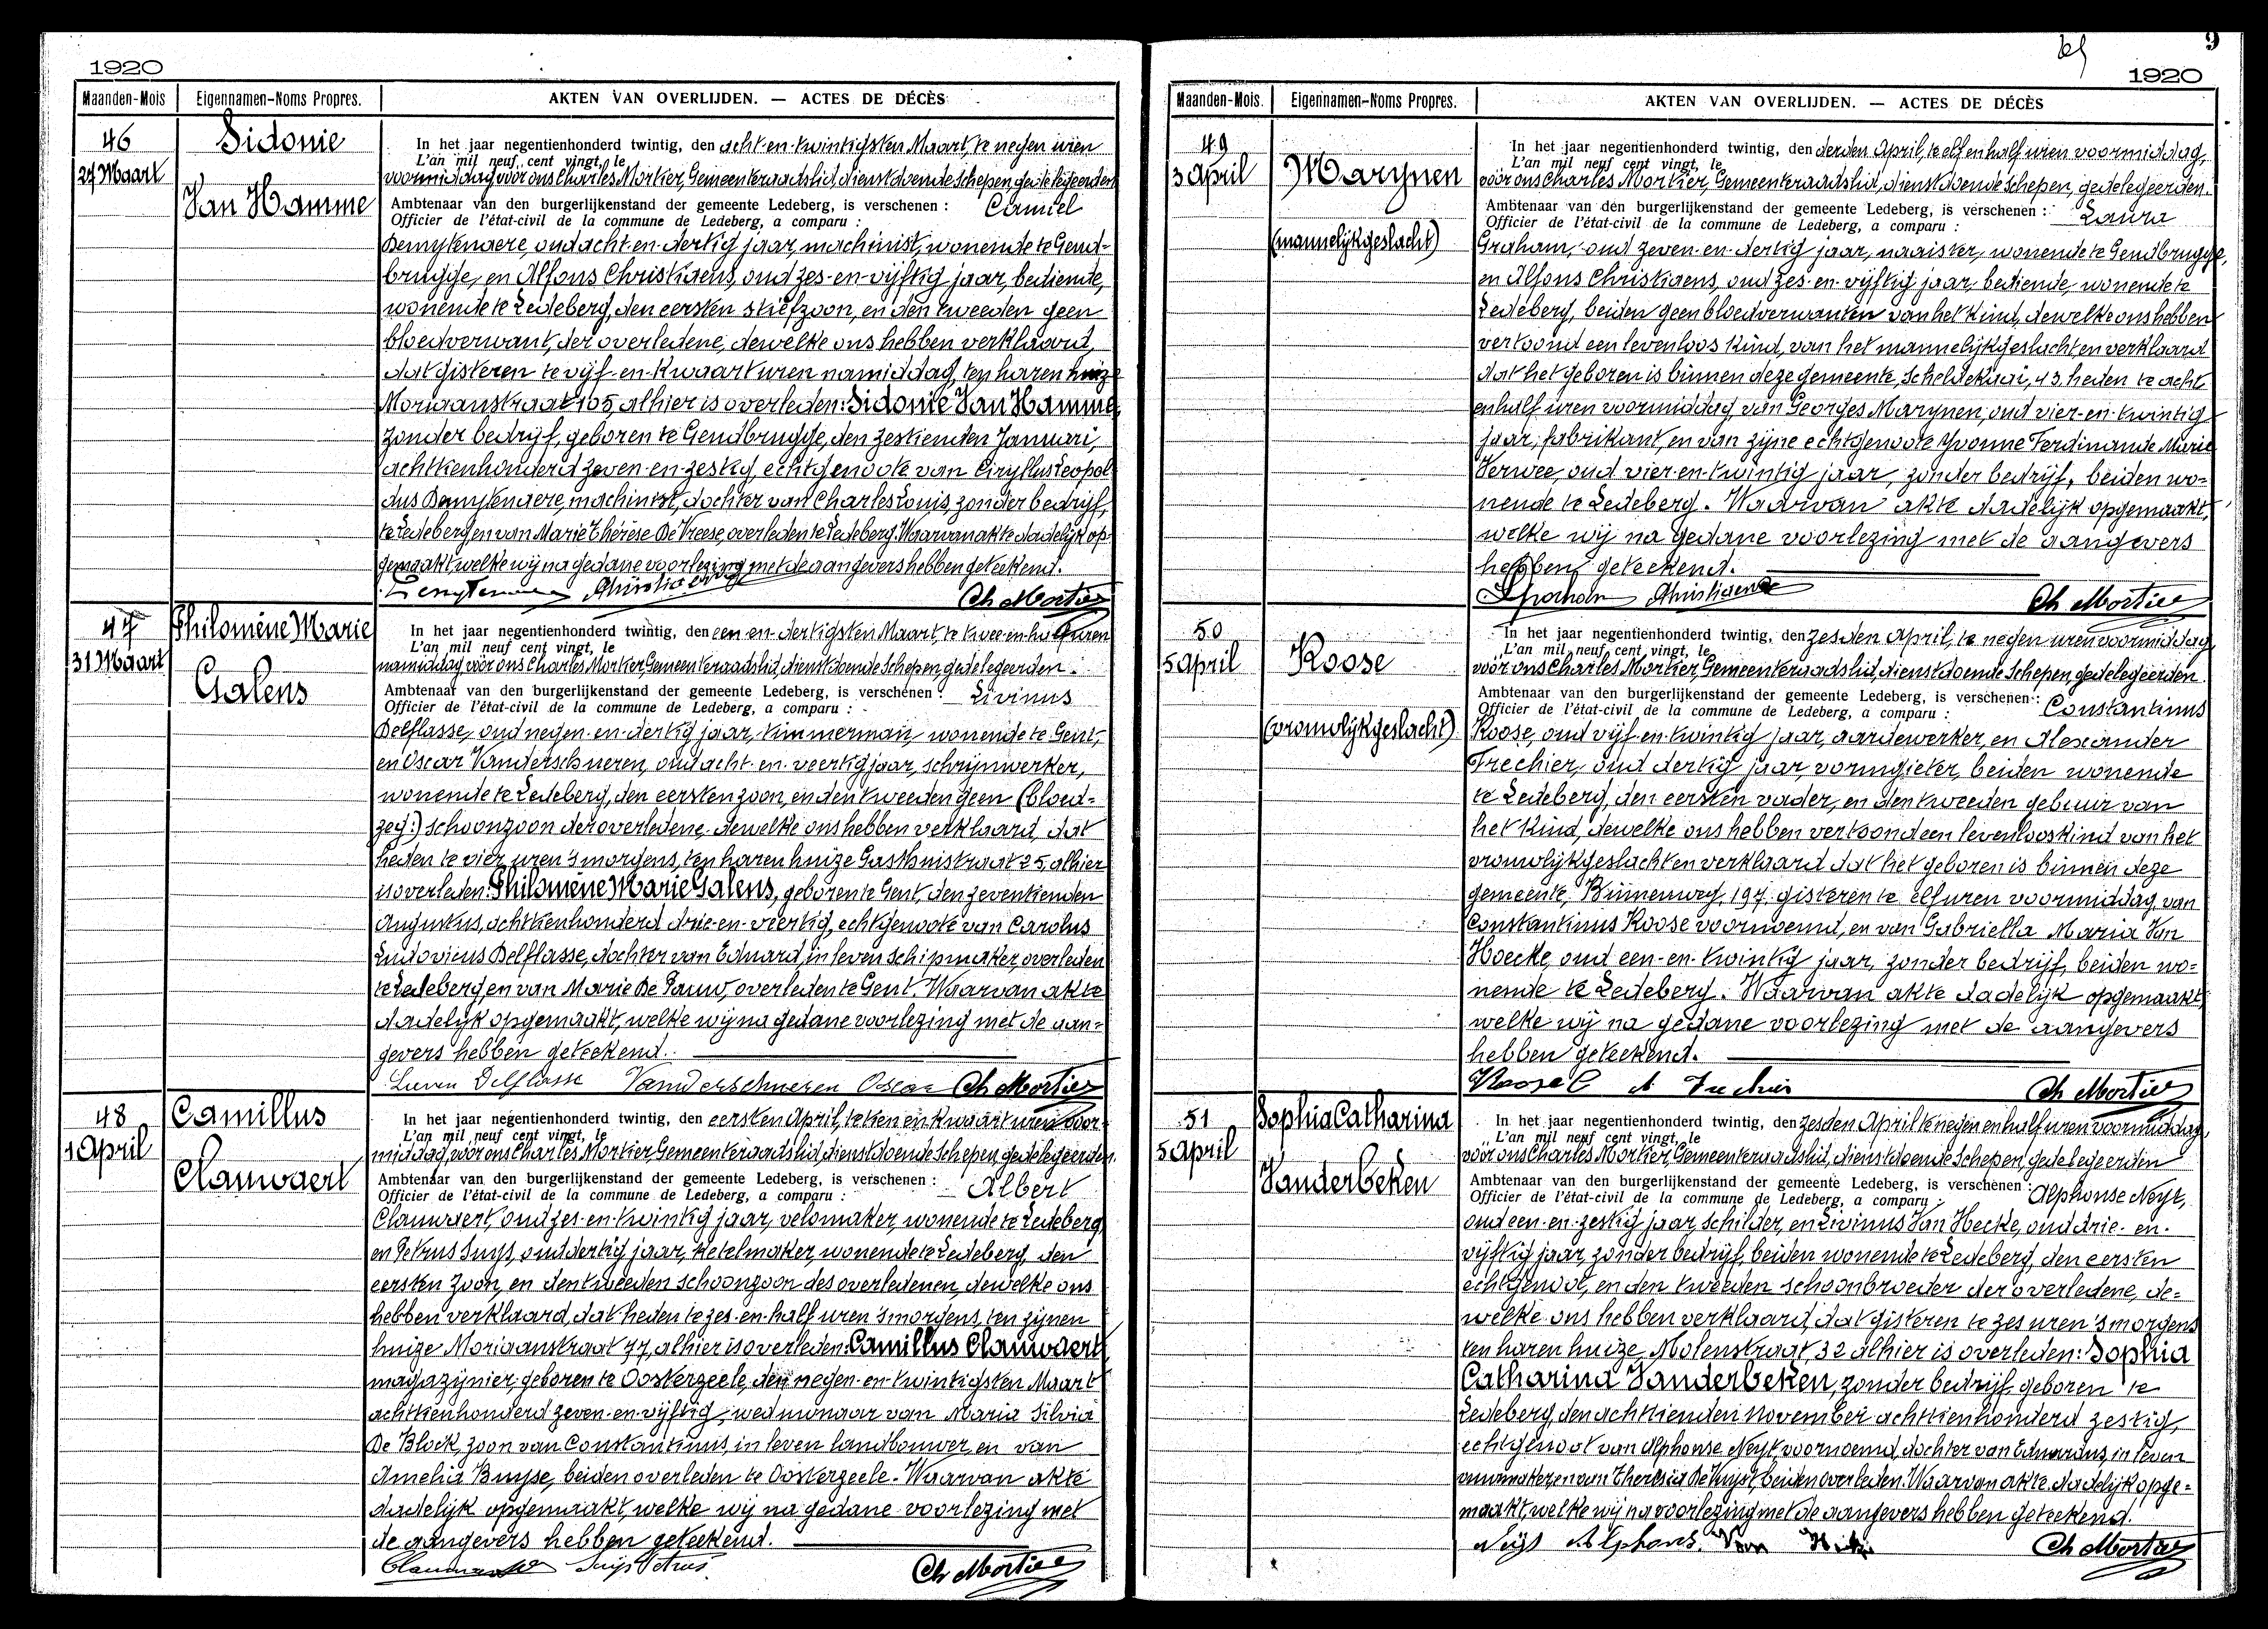 1920
Maanden-Mois
Eigennamen-Noms Propres.
AKTEN VAN OVERLIJDEN. — ACTES DE DÉCÈS
46
27 Maart
Sidonie
Van Hamme
In het jaar negentienhonderd twintig, den acht-en-twintigsten Maart, te negen uren
L'an mil neuf cent vingt, le
voormiddag vóór ons Charles Mortier, Gemeenteraadslid, dienstdoende Schepen, gedelegeerden
Ambtenaar van den burgerlijkenstand der gemeente Ledeberg, is verschenen : Camiel
Officier de l'état-civil de la commune de Ledeberg, a comparu :
Demytenaere, oud acht-en-dertig jaar, machinist, wonende te Gend-
brugge, en Alfons Christiaens, oud zes-en-vijftig jaar, bediende,
wonende te Ledeberg, den eersten stiefzoon, en den tweeden geen
bloedverwant, der overledene, dewelke ons hebben verklaard,
dat gisteren te vijf-en-kwart uren namiddag, ten haren huize
Moriaanstraat 105, alhier is overleden: Sidonie Van Hamme,
zonder bedrijf, geboren te Gendbrugge, den zestienden Januari,
achttienhonderd zeven-en-zestig, echtgenoote van Ciryllus Leopol-
dus Demytenaere, machinist, dochter van Charles Louis, zonder bedrijf,
te Ledeberg en van Marie Thérèse De Vreese, overleden te Ledeberg. Waarvan akte dadelijk op-
gemaakt, welke wij na gedane voorlezing met de aangevers hebben geteekend.
Christiaens Ch Mortier
47
31 Maart
Philomène Marie
Galens
In het jaar negentienhonderd twintig, den een-en-dertigsten Maart, te twee-en-half uren
L'an mil neuf cent vingt, le
namiddag, vóór ons Charles Mortier, Gemeenteraadslid, dienstdoende Schepen, gedelegeerden
Ambtenaar van den burgerlijkenstand der gemeente Ledeberg, is verschenen : Livinus
Officier de l'état-civil de la commune de Ledeberg, a comparu :
Delflasse, oud negen-en-dertig jaar, timmerman, wonende te Gent,
en Oscar Vanderschueren, oud acht-en-veertig jaar, schrijnwerker,
wonende te Ledeberg, den eersten zoon, en den tweeden geen (bloed-
zeg:) schoonzoon der overledene, dewelke ons hebben verklaard, dat
heden te vier uren 's morgens, ten haren huize Gasthuistraat 25, alhier
is overleden: Philomène Marie Galens, geboren te Gent, den zeventienden
Augustus, achttienhonderd drie-en-veertig, echtgenoote van Carolus
Ludovicus Delflasse, dochter van Eduard, in leven schipmaker, overleden
te Ledeberg, en van Marie De Pauw, overleden te Gent. Waarvan akte
dadelijk opgemaakt, welke wij na gedane voorlezing met de aan-
gevers hebben geteekend.
Lieven Delflasse Vanderschueren Oscar Ch Mortier
48
1 April
Camillus
Clauwaert
In het jaar negentienhonderd twintig, den eersten April, te tien en kwaart uren voor-
L'an mil neuf cent vingt, le
middag, vóór ons Charles Mortier, Gemeenteraadslid, dienstdoende Schepen, gedelegeerden.
Ambtenaar van den burgerlijkenstand der gemeente Ledeberg, is verschenen : Albert
Officier de l'état-civil de la commune de Ledeberg, a comparu :
Clauwaert, oud zes-en-twintig jaar, velomaker, wonende te Ledeberg,
en Petrus Suys, oud dertig jaar, ketelmaker, wonende te Ledeberg, den
eersten zoon, en den tweeden schoonzoon des overledenen, dewelke ons
hebben verklaard, dat heden te zes-en-half uren 's morgens, ten zijnen
huize Moriaanstraat 77, alhier is overleden: Camillus Clauwaert,
magazijnier, geboren te Oosterzeele, den negen-en-twintigsten Maart
achttienhonderd zeven-en-vijftig, weduwnaar van Maria Silvia
De Block, zoon van Constantinus, in leven landbouwer, en van
Amelia Buyse, beiden overleden te Oosterzeele. Waarvan akte
dadelijk opgemaakt, welke wij na gedane voorlezing met
de aangevers hebben geteekend.
Suys Petrus. Ch Mortier
9
1920
Maanden-Mois.
Eigennamen-Noms Propres.
AKTEN VAN OVERLIJDEN. — ACTES DE DÉCÈS
49
3 April
Marynen
(mannelijkgeslacht)
In het jaar negentienhonderd twintig, den derden April, te elf en half uren voormiddag,
L'an mil neuf cent vingt, le
vóór ons Charles Mortier, Gemeenteraadslid, dienstdoende Schepen, gedelegeerden.
Ambtenaar van den burgerlijkenstand der gemeente Ledeberg, is verschenen : Laura
Officier de l'état-civil de la commune de Ledeberg, a comparu :
Graham, oud zeven-en-dertig jaar, naaister, wonende te Gendbrugge,
en Alfons Christiaens, oud zes-en-vijftig jaar, bediende, wonende te
Ledeberg, beiden geen bloedverwanten van het kind, dewelke ons hebben
vertoond een levenloos kind, van het mannelijkgeslacht en verklaard
dat het geboren is binnen deze gemeente, Scheldekaai, 43, heden te acht
en half uren voormiddag, van Georges Marynen, oud vier-en-twintig
jaar, fabrikant, en van zijne echtgenoote Yvonne Ferdinande Marie
Verwee, oud vier-en-twintig jaar, zonder bedrijf, beiden wo-
nende te Ledeberg. Waarvan akte dadelijk opgemaakt,
welke wij na gedane voorlezing met de aangevers
hebben geteekend.
L Graham Christiaens Ch Mortier
50
5 April
Roose
(vrouwlijkgeslacht)
In het jaar negentienhonderd twintig, den zesden April, te negen uren voormiddag
L'an mil neuf cent vingt, le
vóór ons Charles Mortier, Gemeenteraadslid, dienstdoende Schepen, gedelegeerden.
Ambtenaar van den burgerlijkenstand der gemeente Ledeberg, is verschenen : Constantinus
Officier de l'état-civil de la commune de Ledeberg, a comparu :
Roose, oud vijf-en-twintig jaar, aardewerker, en Alexander
Frechier, oud dertig jaar, vormgieter, beiden wonende
te Ledeberg, den eersten vader, en den tweeden gebuur van
het kind, dewelke ons hebben vertoond een levenloos kind van het
vrouwlijkgeslacht en verklaard dat het geboren is binnen deze
gemeente, Binnenweg, 197, gisteren te elf uren voormiddag, van
Constantinus Roose voornoemd, en van Gabriella Maria Van
Hoecke, oud een-en-twintig jaar, zonder bedrijf, beiden wo-
nende te Ledeberg. Waarvan akte dadelijk opgemaakt,
welke wij na gedane voorlezing met de aangevers
hebben geteekend.
Roose C A Frechier Ch Mortier
51
5 April
Sophia Catharina
Vanderbeken
In het jaar negentienhonderd twintig, den zesden April te negen en half uren voormiddag,
L'an mil neuf cent vingt, le
vóór ons Charles Mortier, Gemeenteraadslid, dienstdoende Schepen, gedelegeerden
Ambtenaar van den burgerlijkenstand der gemeente Ledeberg, is verschenen : Alphonse Neyt,
Officier de l'état-civil de la commune de Ledeberg, a comparu :
oud een-en-zestig jaar, schilder, en Livinus Van Hecke, oud drie-en-
vijftig jaar, zonder bedrijf, beiden wonende te Ledeberg, den eersten
echtgenoot, en den tweeden schoonbroeder der overledene, de-
welke ons hebben verklaard, dat gisteren te zes uren 's morgens
ten haren huize, Molenstraat, 32 alhier is overleden: Sophia
Catharina Vanderbeken, zonder bedrijf, geboren te
Ledeberg, den achttienden November achttienhonderd zestig,
echtgenoot van Alphonse Neyt voornoemd, dochter van Eduardus, in leven
en van Theresia De Kuijst, beiden overleden. Waarvan akte dadelijk opge-
maakt, welke wij na voorlezing met de aangevers hebben geteekend.
Alphons. Van Ch Mortier